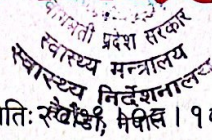 बागमती प्रदेश सरकार
स्वास्थ्य मन्त्रालय
स्वास्थ्य निर्देशनालय
ति: